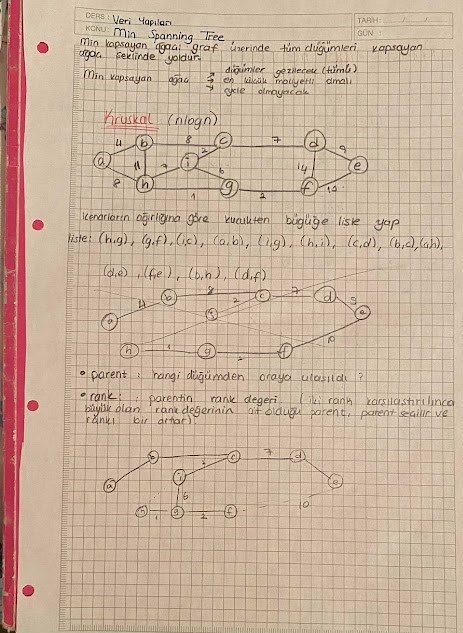 DERS: Veri Yapıları
TARİH: / /
KONU: Min Spanning Tree
GÜN:
Min kapsayan ağacı graf üzerinde tüm düğümleri kapsayan
ağaç şeklinde yoldur.
Min kapsayan ağaç → düğümler gezilecek (tümü)
→ en küçük maliyetli olmalı
→ cycle olmayacak
Kruskal (nlogn)
4 b 8 c 7 d 9
a 11 i 2 14 e
8 h 7 6 g 2 f 10
1
Kenarların ağırlığına göre küçükten büyüğe liste yap
liste: (h,g), (g,f), (i,c), (a,b), (i,g), (h,i), (c,d), (b,c), (a,h),
(d,e), (f,e), (b,h), (d,f)
a 4 b 8 c 7 d 9 e
i 2
h 1 g 2 f 10
• parent: hangi düğümden oraya ulaşıldı?
• rank: : parentin rank değeri (iki rank karşılaştırılınca
büyük olan rank değerinin ait olduğu parent, parent seçilir ve
rankı bir artar).
a b c 7 d e
i 2
6
h 1 g 2 f 10